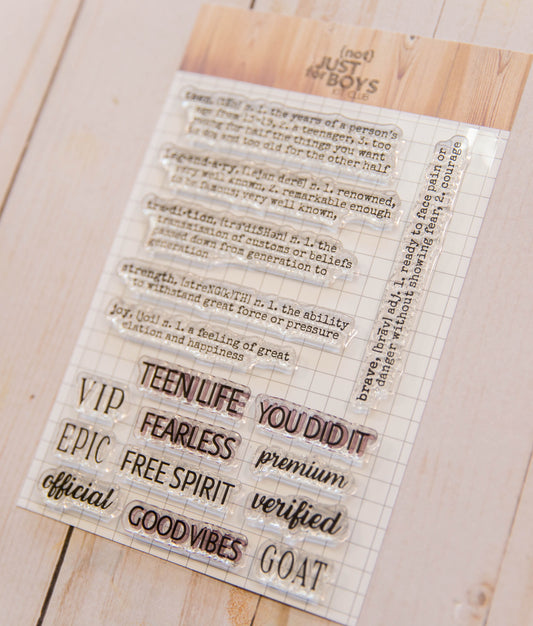 (not)
JUST
for BOYS
teen, (tēn) n. 1. the years of a person's
age from 13-19, 2. a teenager, 3. too
young for half the things you want
to do and too old for the other half
leg·end·ary, n. 1. renowned,
very well known, 2. remarkable enough
to be famous; very well known,
tradi·tion, (trəˈdiSHən) n. 1. the
transmission of customs or beliefs
passed down from generation to
generation
strength, (streNG(k)TH) n. 1. the ability
to withstand great force or pressure
joy, (joi) n. 1. a feeling of great
elation and happiness
brave, (brāv) adj. 1. ready to face pain or
danger without showing fear, 2. courage
TEEN LIFE
VIP
YOU DID IT
FEARLESS
EPIC
premium
FREE SPIRIT
official
verified
GOOD VIBES
GOAT